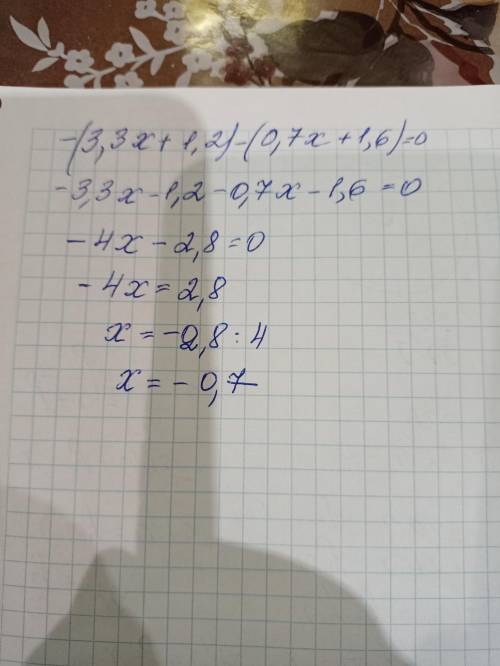 -(3,3x+1,2)-(0,7x+1,6)=0
-3,3x-1,2-0,7x-1,6=0
-4x-2,8=0
-4x=2,8
x=-2,8:4
x=-0,7